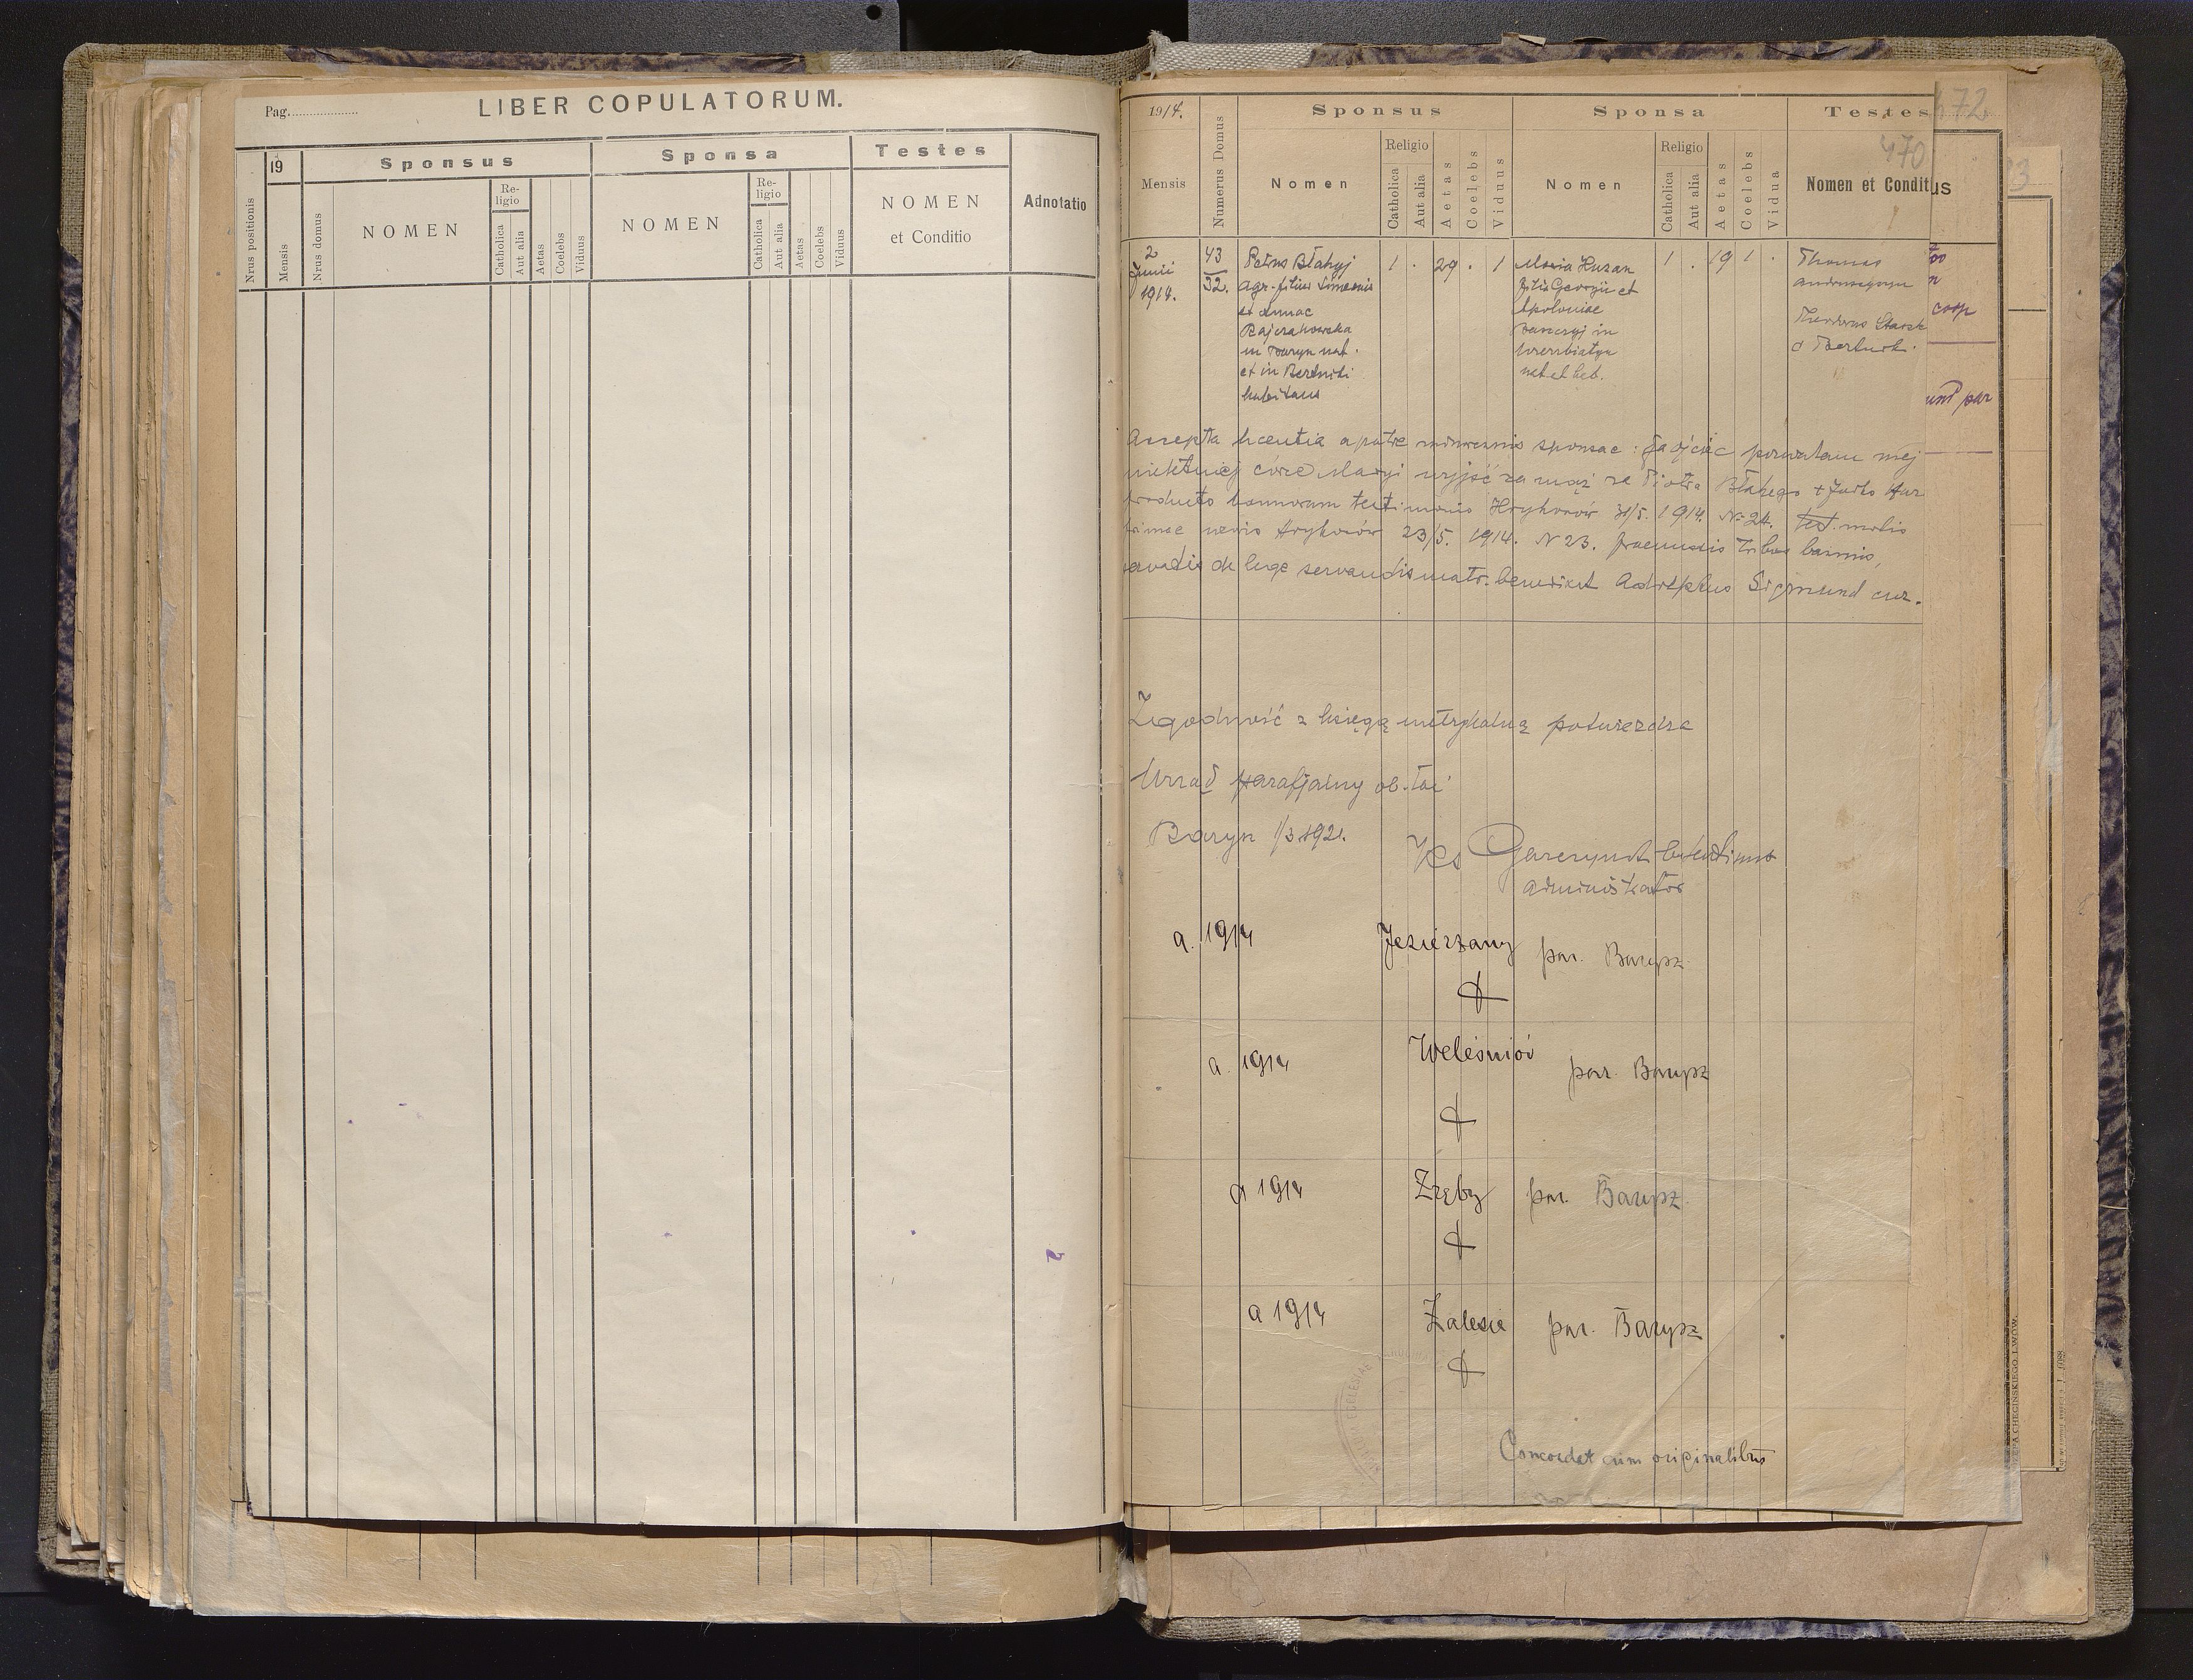 Pag.
LIBER COPULATORUM.
Nrus positionis
19
Mensis
Nrus domus
Sponsus
NOMEN
Re-
ligio
Catholica
Aut alia
Aetas
Coelebs
Viduus
Sponsa
NOMEN
Re-
ligio
Catholica
Aut alia
Aetas
Coelebs
Viduus
Testes
NOMEN
et Conditio
Adnotatio
1914.
Mensis
Numerus Domus
Sponsus
Nomen
Religio
Catholica
Aut alia
Aetas
Coelebs
Viduus
Sponsa
Nomen
Religio
Catholica
Aut alia
Aetas
Coelebs
Vidua
Testes
Nomen et Condit
us
472
470
2
Junii
1914.
43
32.
Petrus Błahyj
agr. filius Simeonis
et Annae
Bajrakowska
in Baryn nat.
et in Bertniki
habitans
1 . 29 . 1
Maria Huzar
filia Georgii et
Apoloniae
in
Wierzbiatyn
nat et hab.
1 . 19 1 .
Thomas
Theodorus
coop
Accepta licentia a patre minorennis sponsae : Ja ojciec pozwalam mej
nieletniej córce Maryi wyjść za mąż za Piotra Błahego +
producto bannorum testimonio Hryhorów 31/5. 1914. N 24. test.
Hryhorów 23/5. 1914. N 23. praemissis tribus bannis,
servatis de lege servandis matr. benedixit Adolphus Sigmund cur.
Zgodność z księgą metrykalną potwierdza
Urząd parafjalny ob. łac
Barysz 1/3 1921.
Ks
administrator
a. 1914 Jezierzany par. Barysz
a. 1914 Weleśniów par. Barysz
a 1914 Zręby par. Barysz
a 1914 Zalesie par. Barysz
Concordat cum originalibus